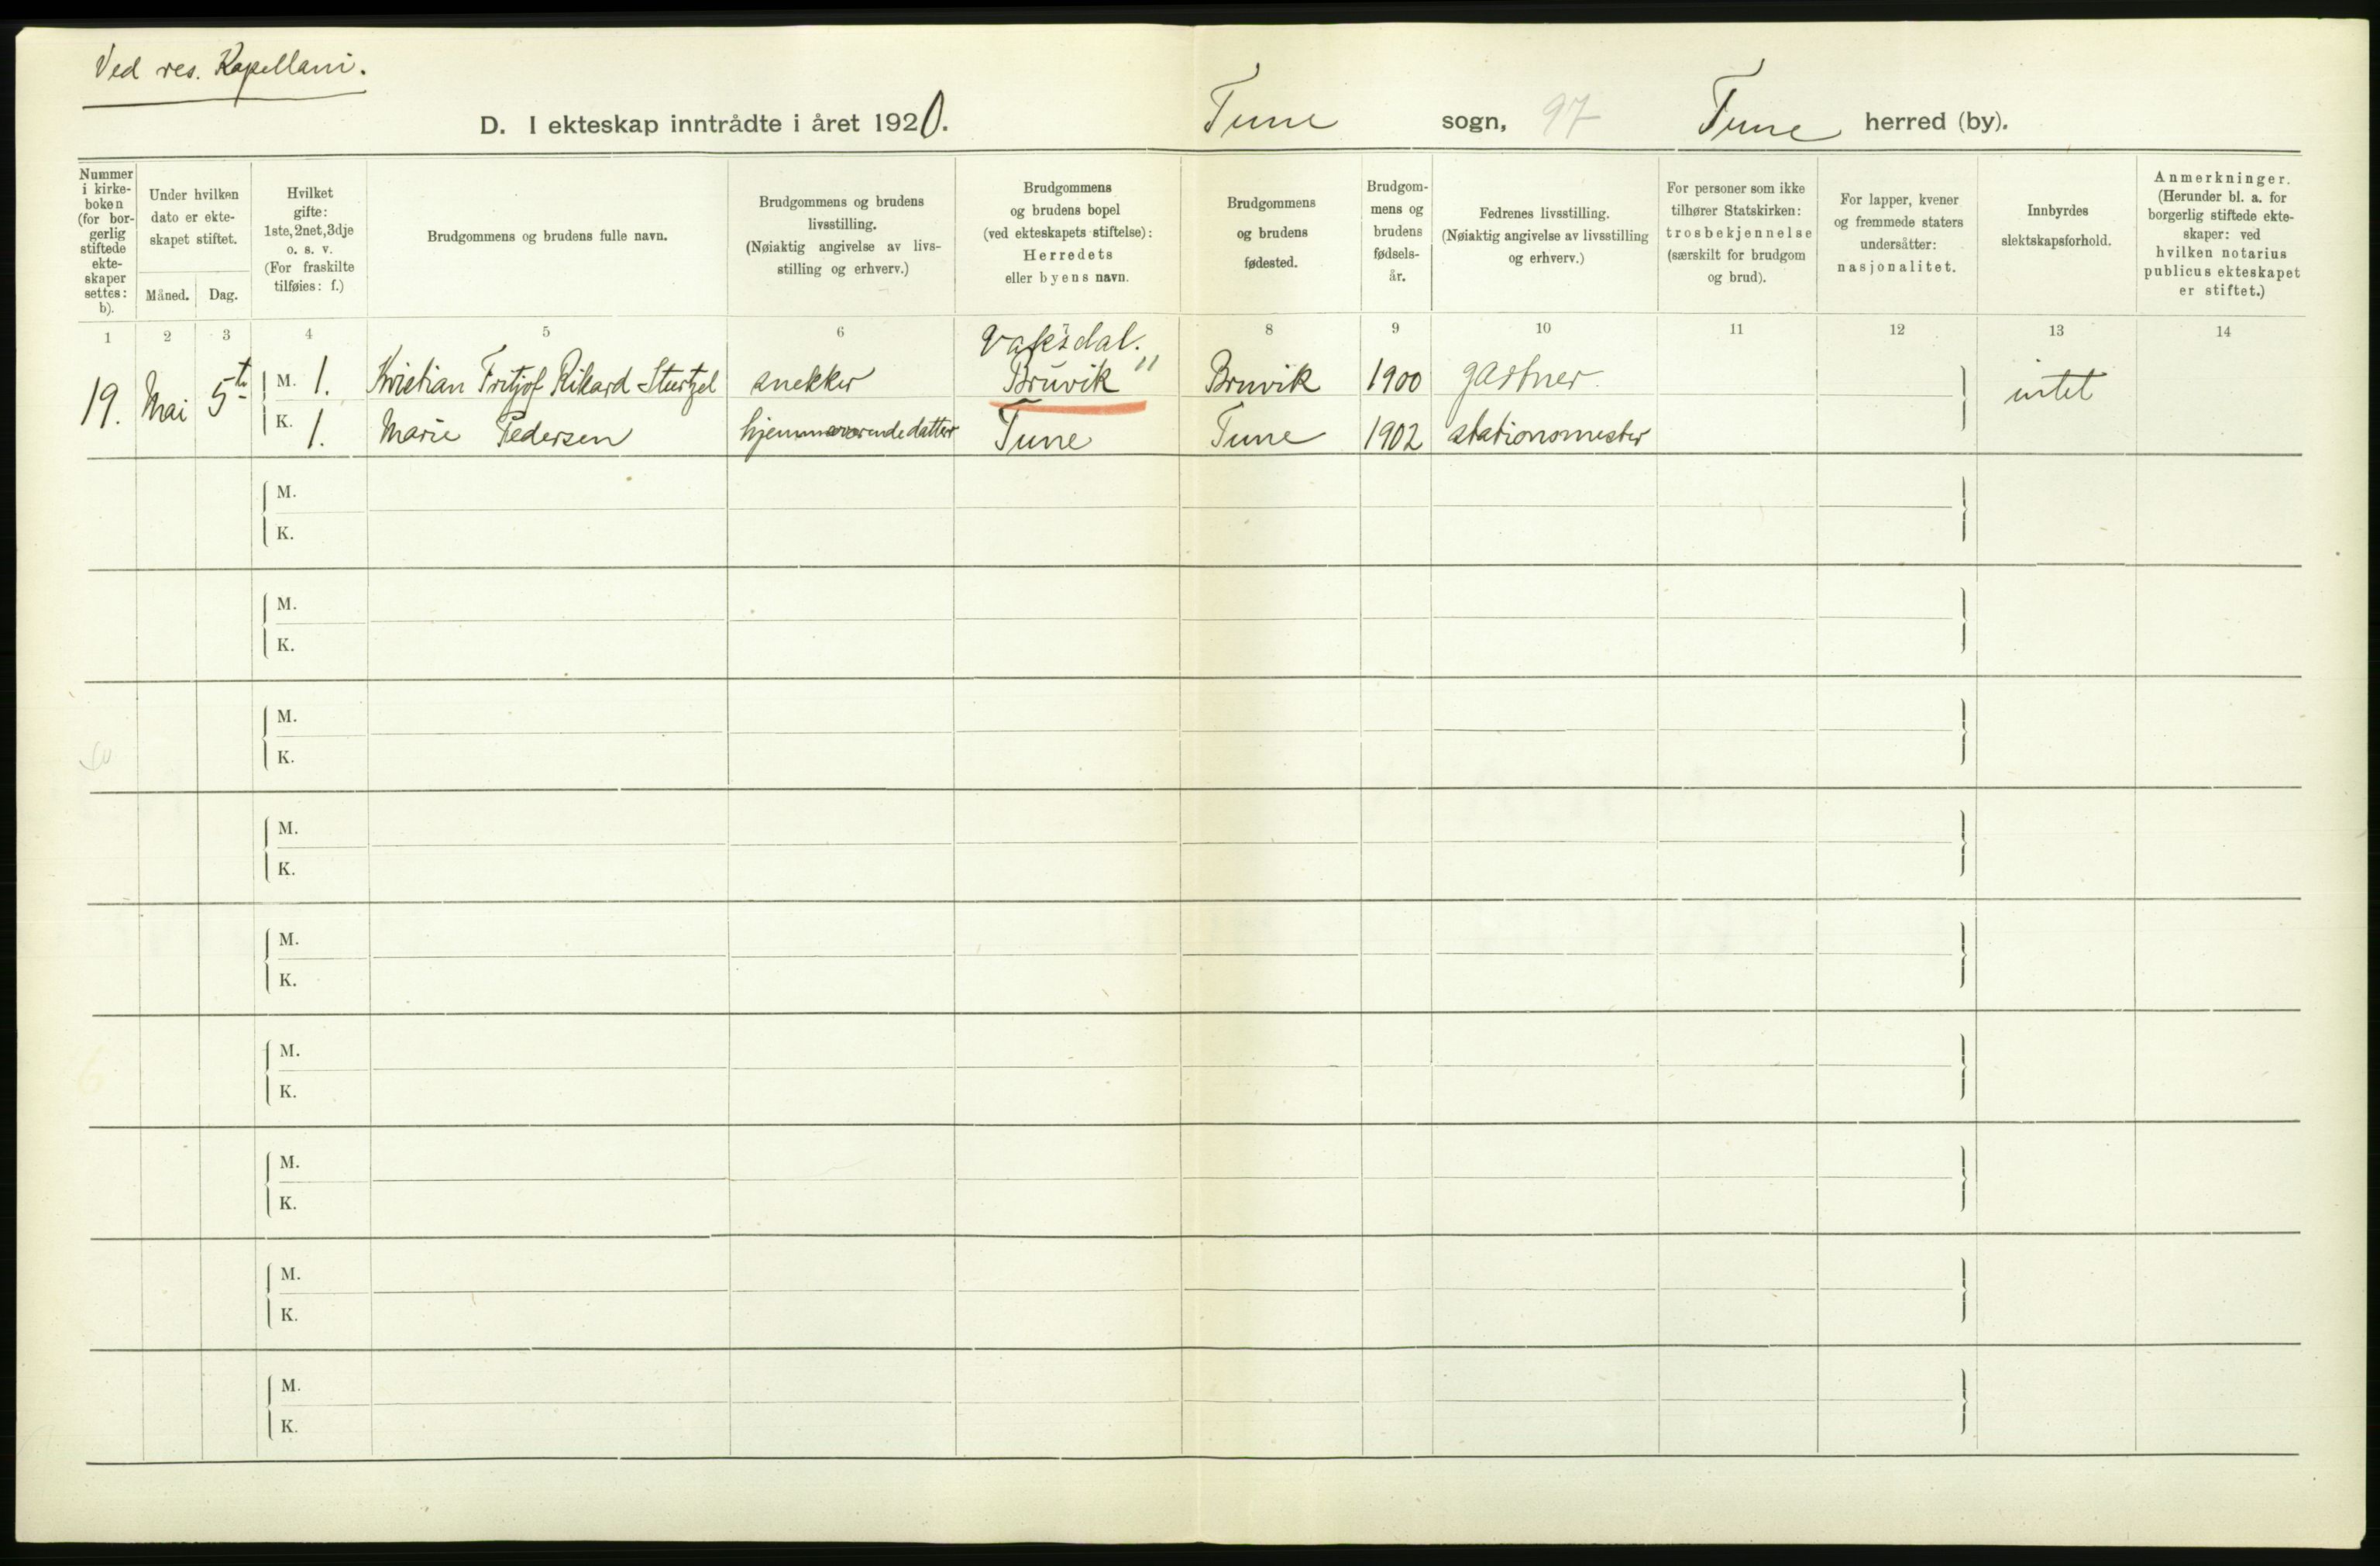 Ved res. Kapellani.
D. I ekteskap inntrådte i året 1920. Tune sogn, 97 Tune herred (by).
Nummer i kirke-boken (for bor-gerlig stiftede ekte-skaper settes: b).
Under hvilken dato er ekte-skapet stiftet.
Måned. Dag.
Hvilket gifte: 1ste, 2net, 3dje o. s. v. (For fraskilte tilføies: f.)
Brudgommens og brudens fulle navn.
Brudgommens og brudens livsstilling. (Nøiaktig angivelse av livs-stilling og erhverv.)
Brudgommens og brudens bopel (ved ekteskapets stiftelse): Herredets eller byens navn.
Brudgommens og brudens fødested.
Brudgom-mens og brudens fødsels-år.
Fedrenes livsstilling. (Nøiaktig angivelse av livsstilling og erhverv.)
For personer som ikke tilhører Statskirken: trosbekjennelse (særskilt for brudgom og brud).
For lapper, kvener og fremmede staters undersåtter: nasjonalitet.
Innbyrdes slektskapsforhold.
Anmerkninger. (Herunder bl. a. for borgerlig stiftede ekte-skaper: ved hvilken notarius publicus ekteskapet er stiftet.)
1 2 3 4 5 6 7 8 9 10 11 12 13 14
Vaksdal.
19. Mai 5t M. 1. Kristian Fritjof Rikard Stürtzel snekker Bruvik " Bruvik 1900 gartner. intet
K. 1. Marie Pedersen hjemmeværende datter Tune Tune 1902 stationsmester
M.
K.
M.
K.
M.
K.
M.
K.
M.
K.
M.
K.
M.
K.
M.
K.
M.
K.